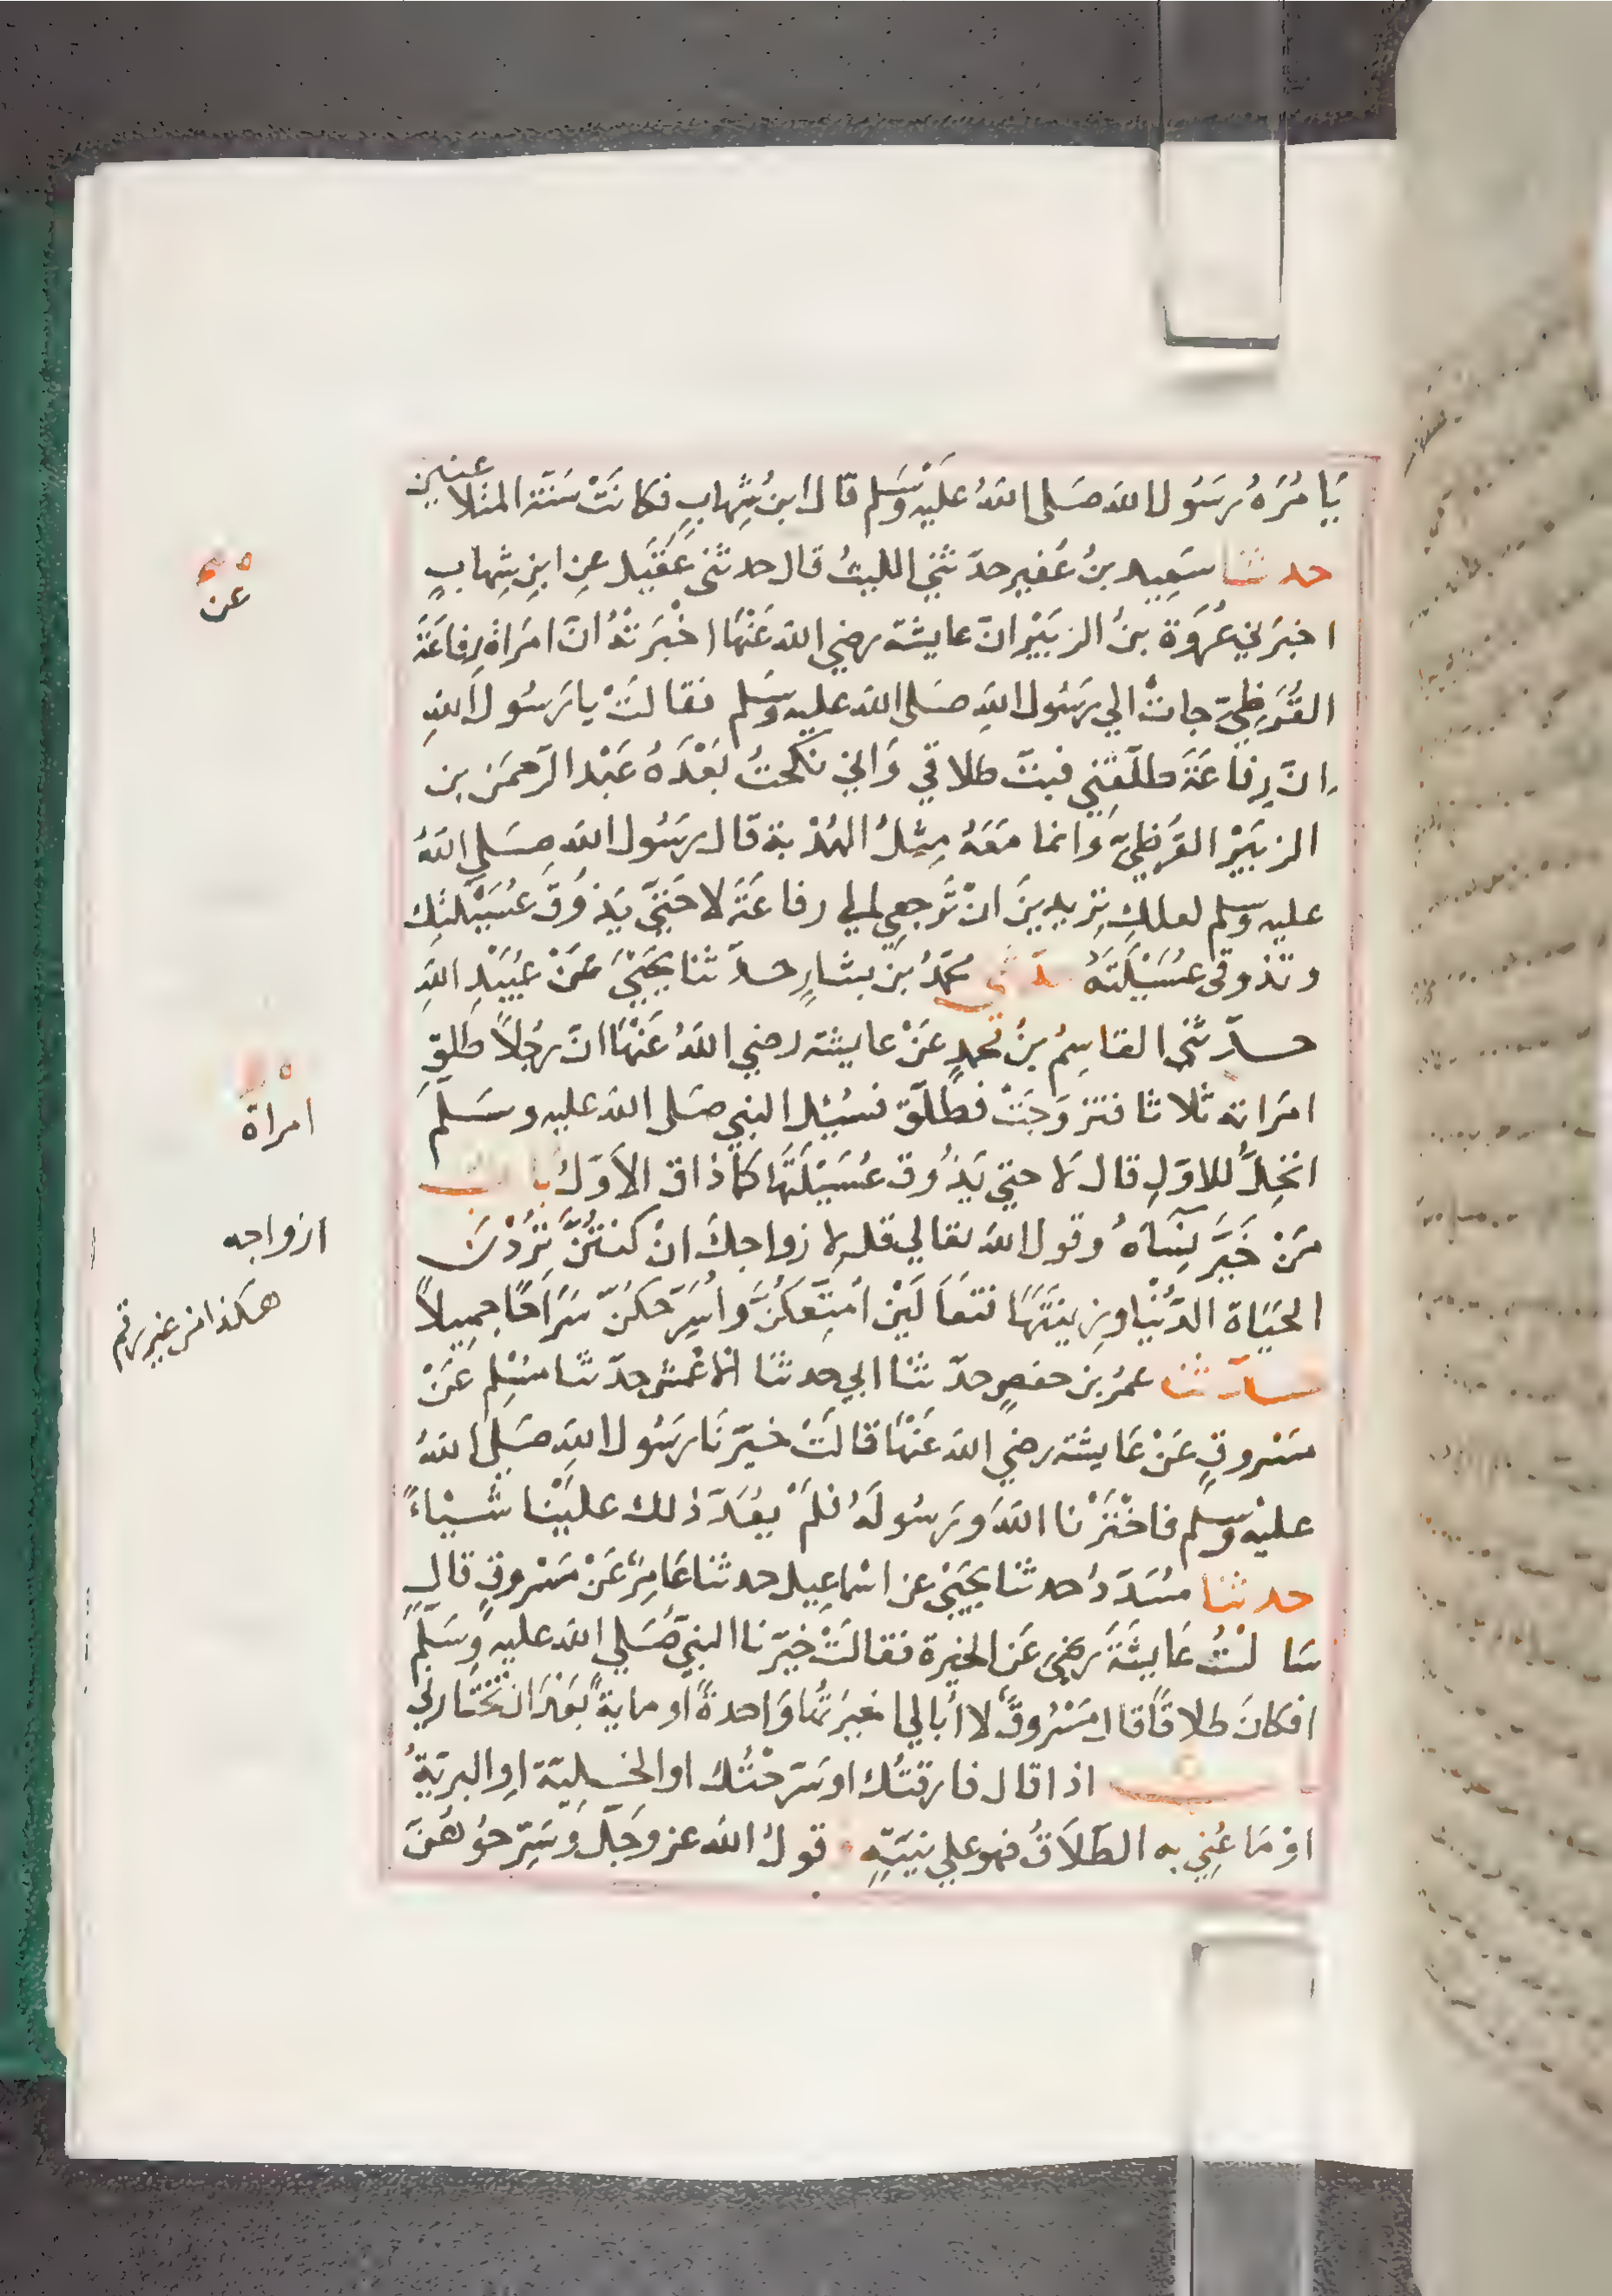 يَامُرَهُ رسَوُل الله صَلى اللهُ عليْه وَسَلم قال ابنُ شِهابٍ فكانَتْ سَنّة المتلاعنين
حدثنا سَعِيد بنُ عُفيرٍ حدّثنِي الليثُ قال حدثنى عُقَيَل عِن ابنِ شِهابٍ
اخبرَني عُروَة بنُ الزبَيْر انّ عايشة رضي الله عَنْهَا اخْبَرَتْهُ انّ امرَاة رِفاعَةَ
القُرَظِيّ جاتْ الي رسَوُل اللهِ صَلى الله عليه وسَلم فقالتْ يا رَسُول اللهِ
انّ رِفاعَةَ طلّقَنِي فبتّ طلاقي وَاني نكحتُ بَعْدَهُ عَبْد الرّحمَن بن
الزبَيْر القرَظِيّ وَانما مَعَهُ مِثلُ الهُدْبة قال رسَوُل اللهِ صَلي اللهُ
عليه وسلم لعلكِ تِريدِينَ انْ تَرجعِي الي رفاعَةَ لا حَتيّ يَذوُقَ عُسَيْلتكِ
وتذوقى عسَيْلَتَهُ حدثني محمّدُ بن بشارٍ حدّثنا يحَييَ عَنْ عُبَيْدِ اللهِ
حدّثنى القاسِمُ بنُ محمدٍ عَنْ عايشة رضي اللهُ عَنْهَا انّ رَجُلاً طلقِ
امَراته ثلاثا فتزوَجَتْ فطَلّق فسُئِل النبي صَلى الله عليه وسَلّم
اتحِلُّ للاوّلِ قال لاَ حتي يَذُوق عُسَيْلَتَهَا كما ذاق الاَوّلُ باب
مَنْ خَيَّرَ نِسَاهُ وقول الله تعالي قل لازواجكَ انْ كنتُنَّ تُرِدْنَ
الحَيَاة الدّنْيا وزِينَتَهَا فتعَالَيْن امَتِّعكنَّ واسَرّحكنّ سَرَاحًا جمِيلاً
حدّثنا عمرُ بن حفصٍ حدّثنا ابي حدثنا الاعْمش حدّثنا مُسْلِم عَنْ
مَسْروقٍ عَنْ عَايشة رضي الله عَنْهَا قالَتْ خيّرنَا رسَوُل اللهِ صَلي اللهُ
عليْه وَسلم فاخْتَرْنا اللهَ ورَسُولَهُ فلَمْ يعُدّ ذلك عليْنا شَيْاءً
حدثنا مسَدّدُ حدثنا يحَييَ عن اسْماعِيل حدثنا عَامِرٌ عَنْ مَسْروقٍ قال
سَالتُ عَايشَةَ رضي عَن الخيرة فقالَتْ خيّرنا النبيّ صَلي الله عليه وسَلّم
افكانَ طلاقًا قال مَسْرُوقٌ لا اُبالي اخيرَتُها وَاحدةً او مايةً بَعْدَ ان تَخْتَارني
باب اذا قال فارقتُك او سَرّحْتُك او الخَلِيّة او البريّةُ
اوْ مَا عُنِي به الطَّلاَقُ فهو علي نِيّتِهِ قولُ الله عز وجَلّ وَسَرّحوُهُنّ
ه
عن
ه
امراة
ازواجه
هكذا من غير رقم